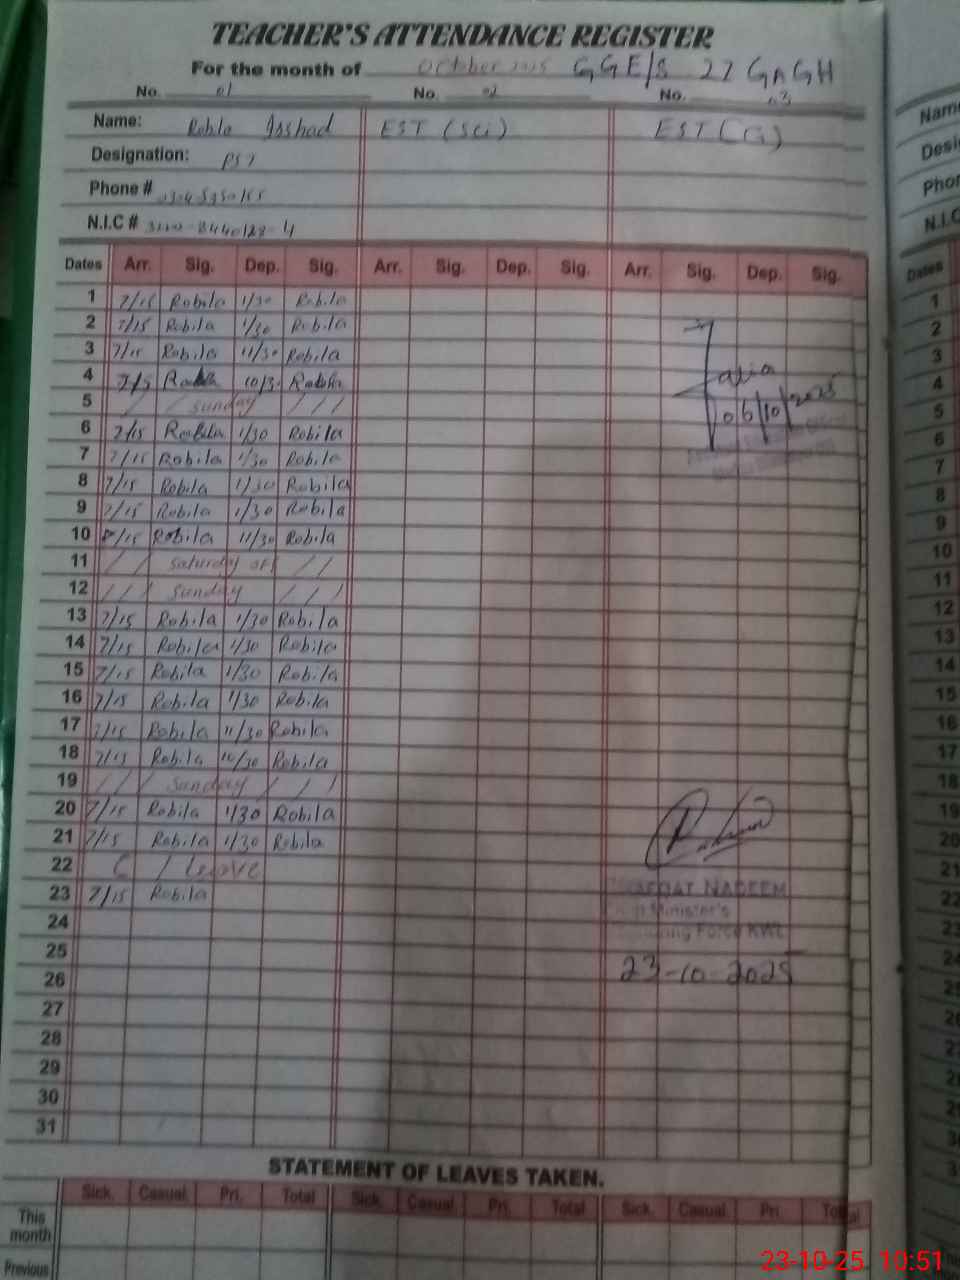 TEACHER'S ATTENDANCE REGISTER
For the month of October 2025 GGE/S 22 GAGH
No. 01 No. 02 No. 03
Name: Irshad EST (Sci) EST (G)
Designation: PST
Phone #
N.I.C #
Dates Arr. Sig. Dep. Sig. Arr. Sig. Dep. Sig. Arr. Sig. Dep. Sig.
1 7/15 Robila 1/30 Robila
2 7/15 Robila 1/30 Robila
3 7/15 Robila 11/30 Robila
4 7/15 10/30
5 / / Sunday / / /
6 7/15 Robila 1/30 Robila
7 7/15 Robila 1/30 Robila
8 7/15 Robila 1/30 Robila
9 7/15 Robila 1/30 Robila
10 7/15 Robila 11/30 Robila
11 / / Saturday off / /
12 / / / Sunday / / /
13 7/15 Robila 1/30 Robila
14 7/15 Robila 1/30 Robila
15 7/15 Robila 1/30 Robila
16 7/15 Robila 1/30 Robila
17 7/15 Robila 11/30 Robila
18 7/15 Robila 10/30 Robila
19 / / / Sunday / / /
20 7/15 Robila 1/30 Robila
21 7/15 Robila 1/30 Robila
22 C / Leave
23 7/15 Robila
24
25
26
27
28
29
30
31
06/10/2025
NADEEM
Minister's
Force KWL
23-10-2025
STATEMENT OF LEAVES TAKEN.
Sick. Casual Pri. Total Sick. Casual Pri. Total Sick. Casual Pri. Total
This
month
Previous
23-10-25 10:51